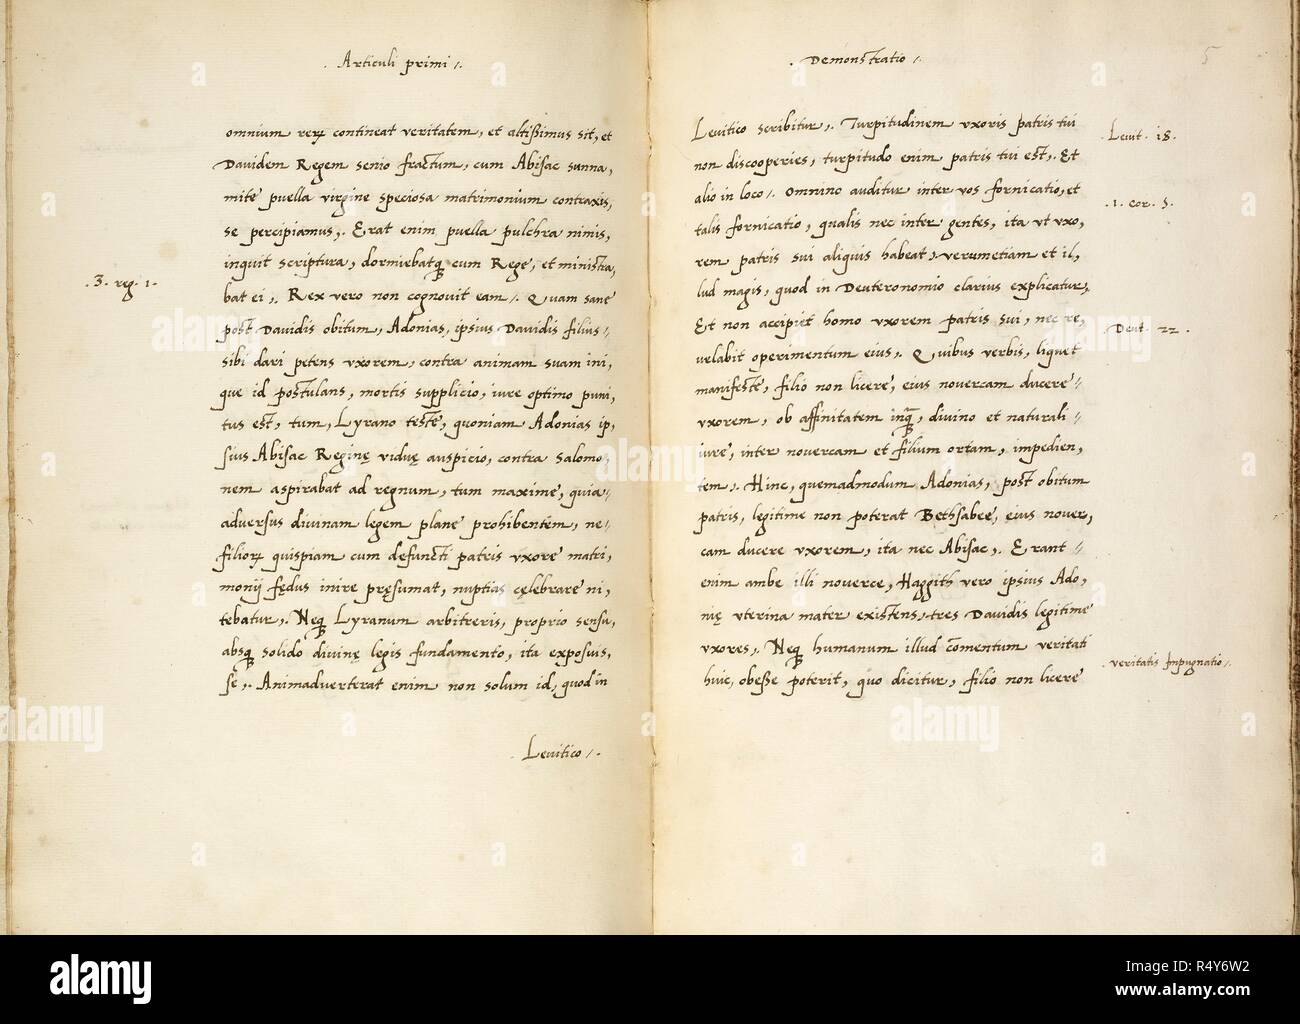 . Articuli primi /.
omnium reꝝ contineat veritatem, et altißimus sit, et
Davidem Regem senio fractum, cum Abisac sunna,
mite puella virgine speciosa matrimonium contraxis,
se percipiamus,. Erat enim puella pulchra nimis,
inquit scriptura, dormiebatqꝫ cum Rege, et ministra,
bat ei,. Rex vero non cognovit eam /. Quam sane
post Davidis obitum, Adonias, ipsius Davidis filius /,
sibi dari petens vxorem, contra animam suam ini,
que id postulans, mortis supplicio, iure optimo puni,
tus est, tum, Lyrano teste, quoniam Adonias ip,
sius Abisac Reginę viduę auspicio, contra Salomo,
nem aspirabat ad regnum, tum maxime, quia /,
adversus divinam legem plane prohibentem, ne /
filioꝝ quispiam cum defuncti patris vxore matri,
monij fędus inire pręsumat, nuptias cęlebrare ni,
tebatur,. Neqꝫ Lyranum arbitreris, proprio sensu,
absqꝫ solido divinę legis fundamento, ita exposuis,
se,. Animadverterat enim non solum id, quod in
. Levitico /.
3. reg. 1.
. Demonstratio /.
5
Levitico scribitur,. Turpitudinem vxoris patris tui
non discooperies, turpitudo enim patris tui est,. Et
alio in loco /. Omnino auditur inter vos fornicatio, et
talis fornicatio, qualis nec inter gentes, ita vt vxo,
rem patris sui aliquis habeat,. verumetiam et il,
lud magis, quod in Deuteronomio clarius explicatur,
Et non accipiet homo vxorem patris sui, nec re,
velabit operimentum eius,. Quibus verbis, liquet
manifeste, filio non licere, eius novercam ducere /
vxorem, ob affinitatem inqꝫ, divino et naturali /
iure, inter novercam et filium ortam, impedien,
tem,. Hinc, quemadmodum Adonias, post obitum
patris, legitime non poterat Bethsabee, eius nover,
cam ducere vxorem, ita nec Abisac,. Erant /
enim ambe illi noverce, Haggith vero ipsius Ado,
nię vterina mater existens, tres Davidis legitime
vxores,. Neqꝫ humanum illud comentum veritati
huic, obesse poterit, quo dicitur, filio non licere
Levit. 18.
. 1. Cor. 5.
Deut. 22.
. veritatis Inpugnatio /.
alamy
Image ID: R4Y6W2
www.alamy.com